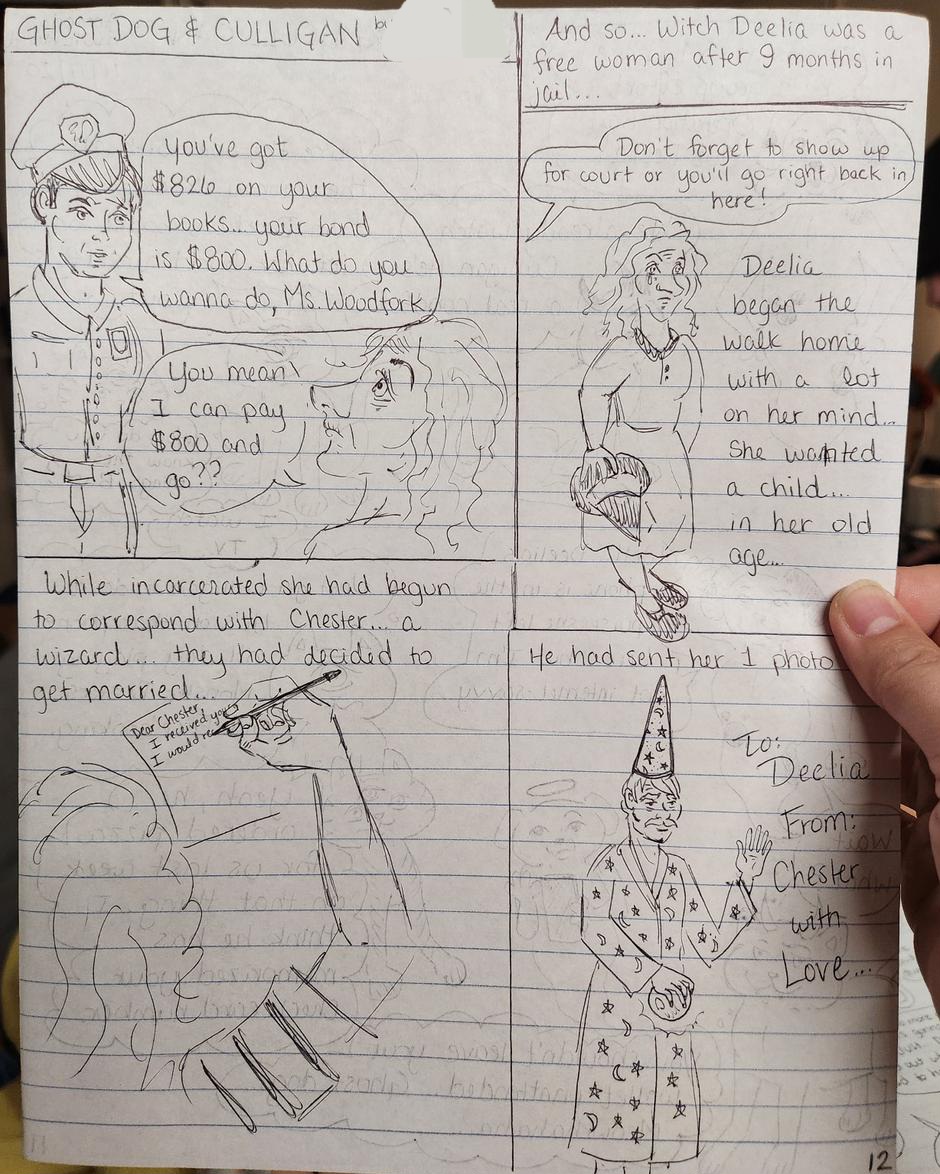 GHOST DOG & CULLIGAN
You've got
$826 on your
books... your bond
is $800. What do you
wanna do, Ms. Woodfork
You mean
I can pay
$800 and
go??
And so... Witch Deelia was a
free woman after 9 months in
jail...
Don't forget to show up
for court or you'll go right back in
here!
Deelia
began the
walk home
with a lot
on her mind...
She wanted
a child...
in her old
age...
While incarcerated she had begun
to correspond with Chester... a
wizard... they had decided to
get married...
Dear Chester,
I received you
I would
He had sent her 1 photo
To:
Deelia
From:
Chester
with
Love...
12